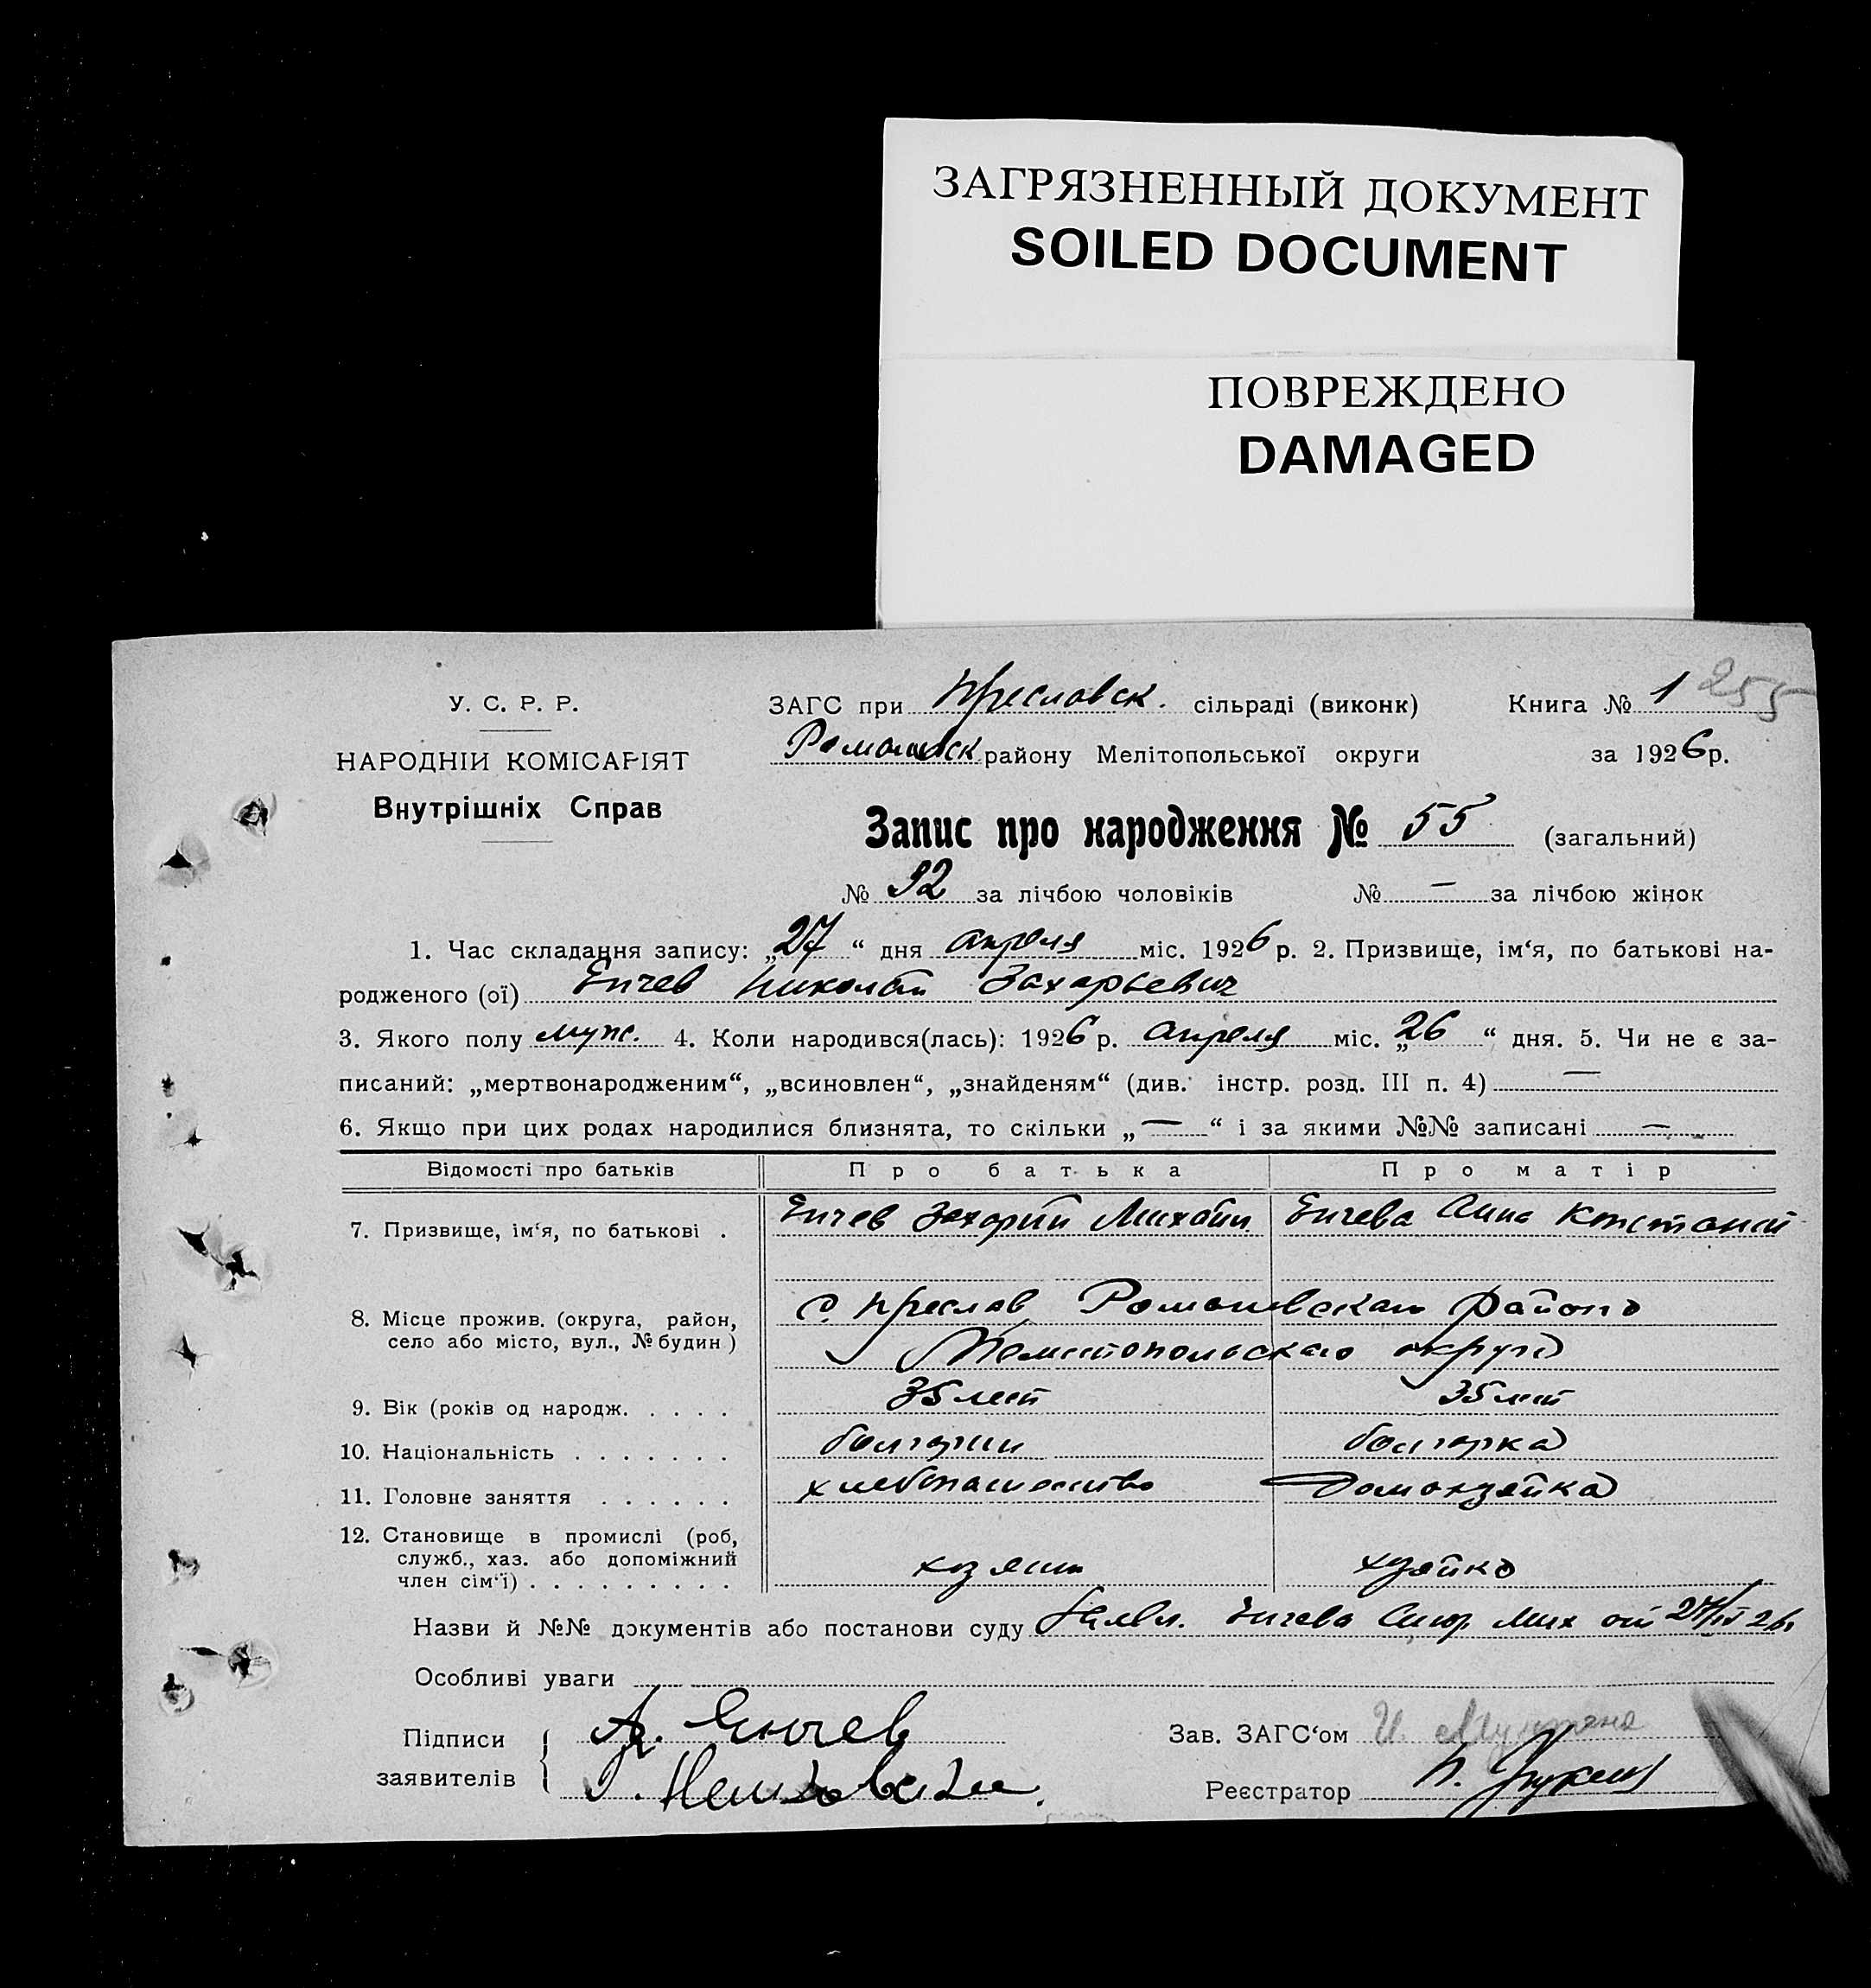 ЗАГРЯЗНЕННЫЙ ДОКУМЕНТ
SOILED DOCUMENT
ПОВРЕЖДЕНО
DAMAGED
У. С. Р. Р.
НАРОДНІЙ КОМІСАРІЯТ
Внутрішніх Справ
ЗАГС при Преславск. сільраді (виконк) Книга № 1 255
Романовск району Мелітопольської округи за 1926 р.
Запис про народження № 55 (загальний)
№ 32 за лічбою чоловіків № — за лічбою жінок
1. Час складання запису: „27“ дня апреля міс. 1926 р. 2. Призвище, ім‘я, по батькові на-
родженого (ої) Енчев Николай Захарьевич
3. Якого полу муж. 4. Коли народився(лась): 1926 р. апреля міс. „26“ дня. 5. Чи не є за-
писаний: „мертвонародженим“, „всиновлен“, „знайденям“ (див. інстр. розд. III п. 4) —
6. Якщо при цих родах народилися близнята, то скільки „—“ і за якими №№ записані —
Відомості про батьків Про батька Про матір
7. Призвище, ім‘я, по батькові . Енчев Захарий Михайл. Енчева Анна Констант
8. Місце прожив. (округа, район,
село або місто, вул., № будин) с. Преслав Романовскаго района
Мелитопольскаго округа
9. Вік (років од народж. . . . . 35 лет 35 лет
10. Національність . . . . . . . болгарин болгарка
11. Головне заняття . . . . . . хлебопашество домохозяйка
12. Становище в промислі (роб,
служб., хаз. або допоміжний
член сім‘ї) . . . . . . . . . хозяин хозяйка
Назви й №№ документів або постанови суду Заявл. Енчева Мих от 27/IV 26
Особливі уваги
Підписи
заявителів А. Янчев
Зав. ЗАГС‘ом И.
Реєстратор П.